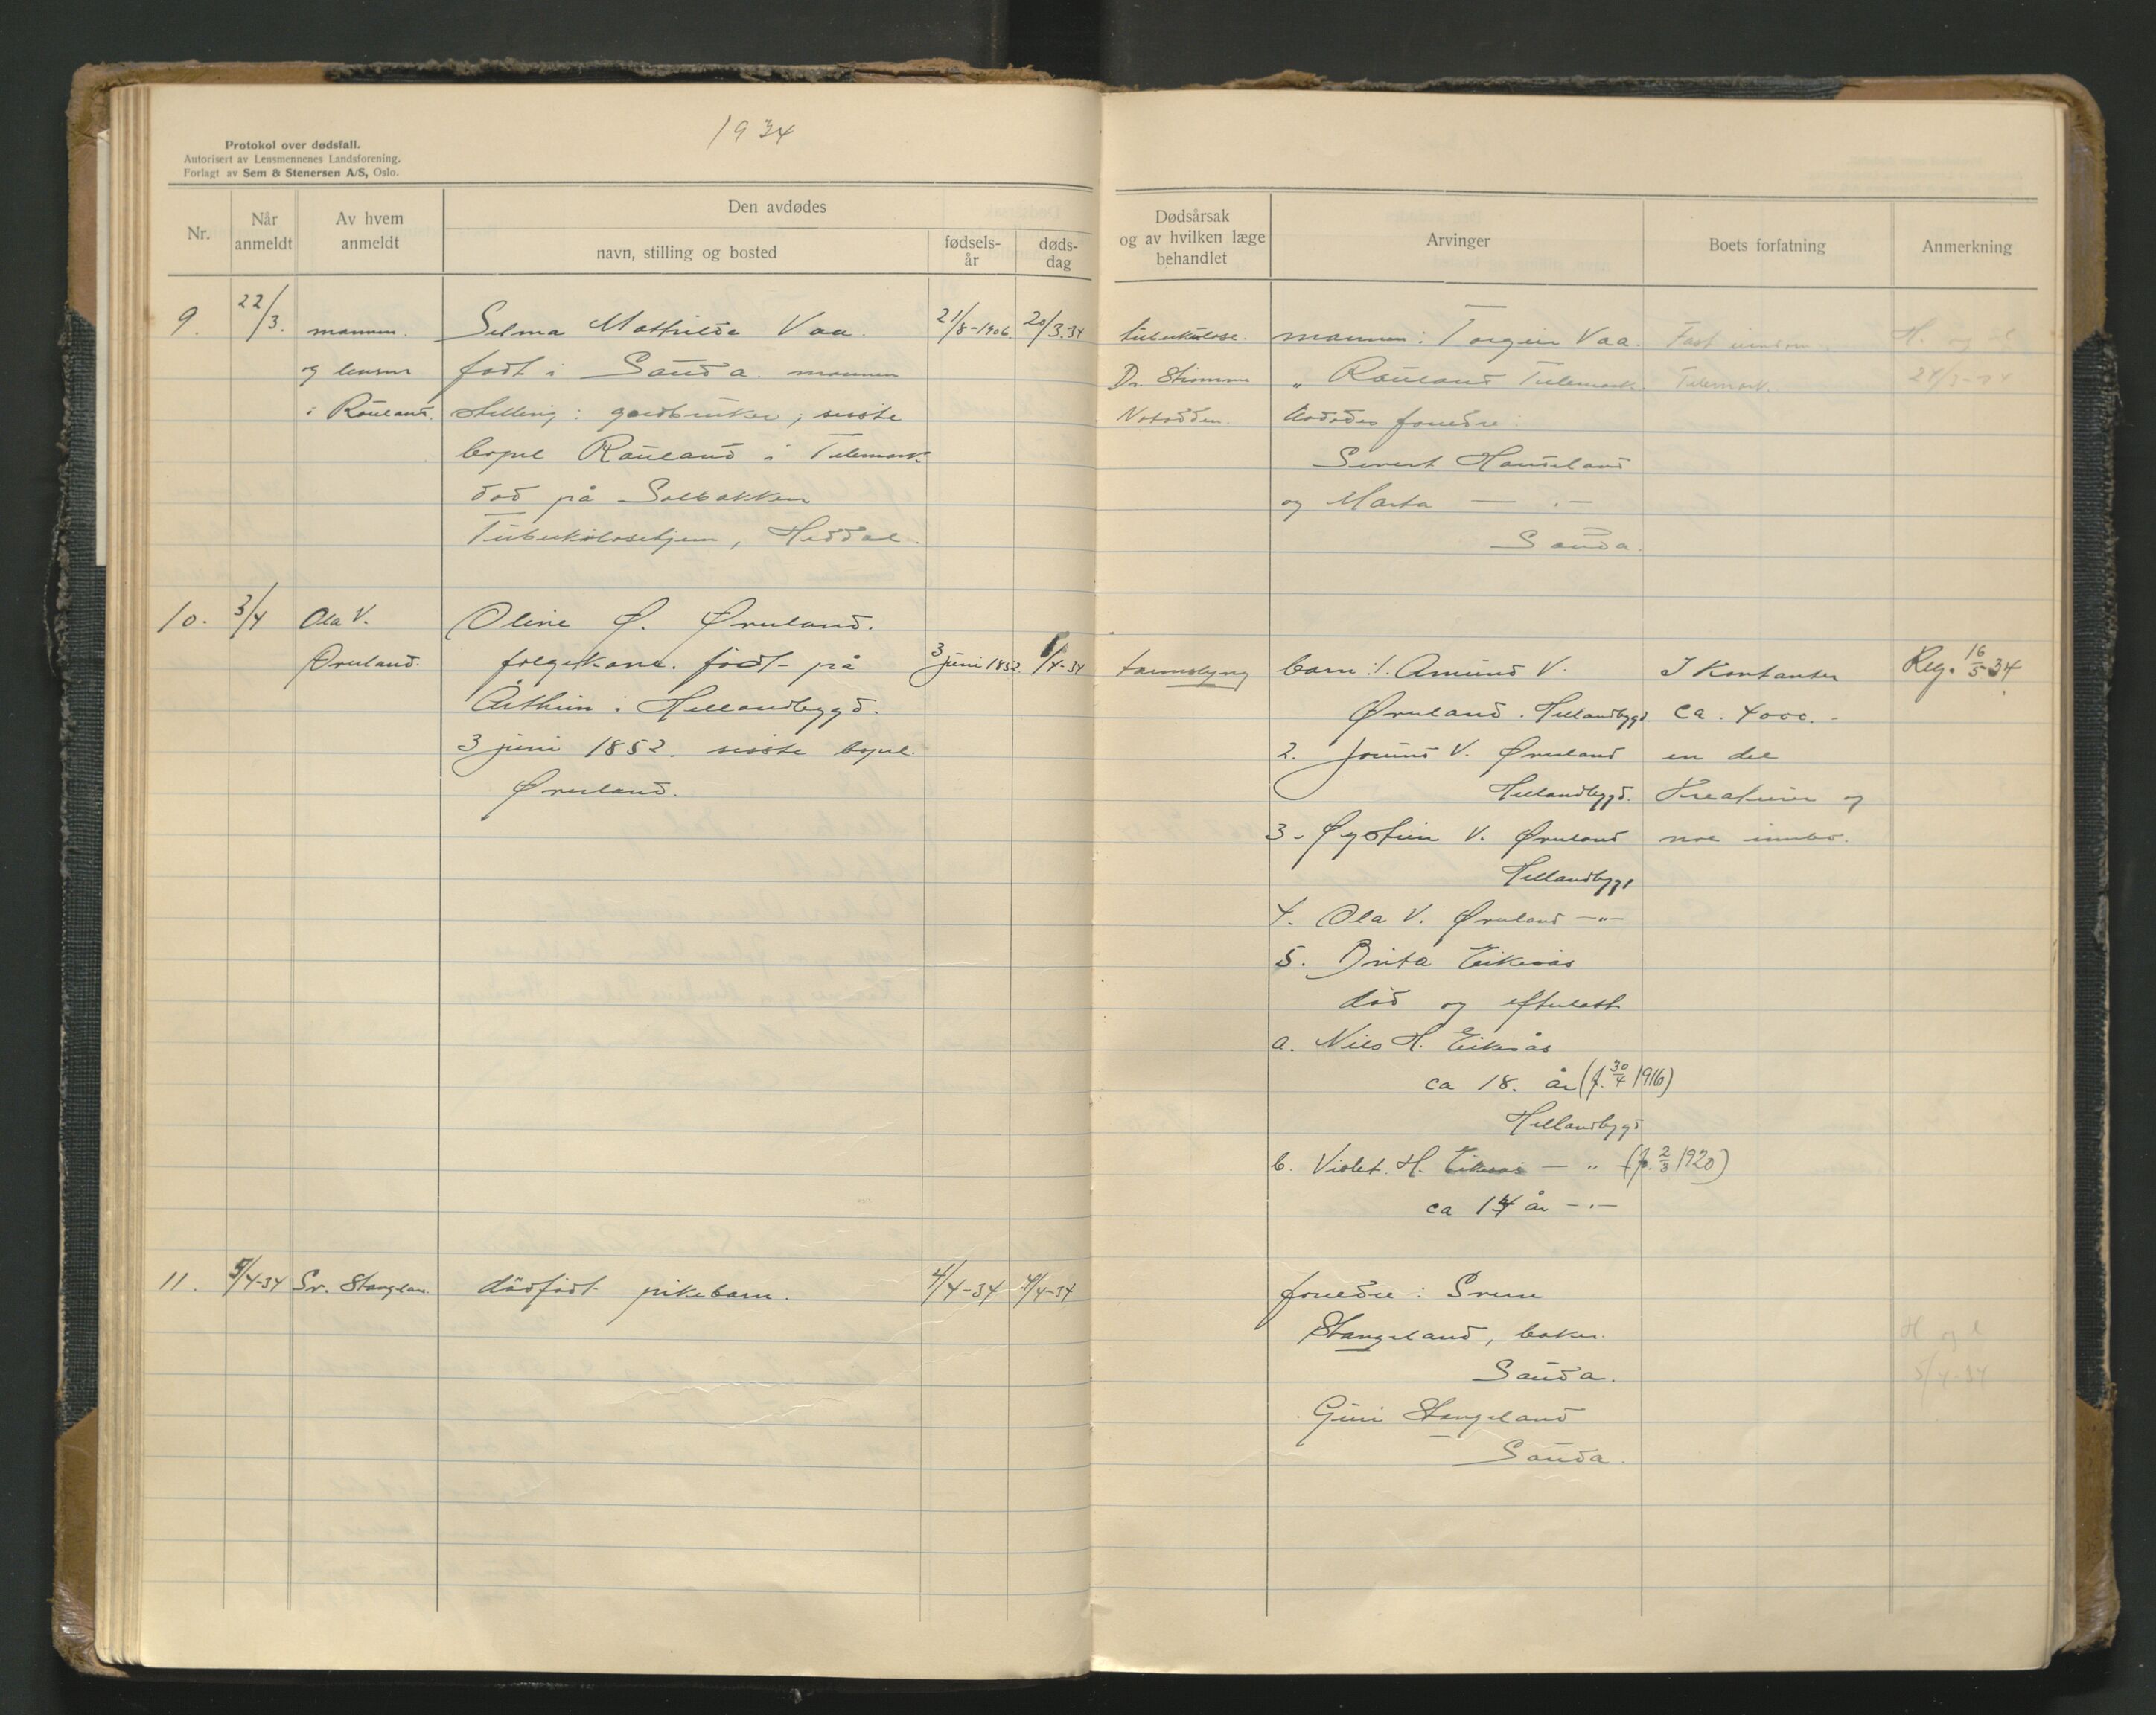 1934
Protokol over dødsfall.
Autorisert av Lensmennenes Landsforening.
Forlagt av Sem & Stenersen A/S, Oslo.
Nr.
Når anmeldt
Av hvem anmeldt
Den avdødes
navn, stilling og bosted
fødsels-år
døds-dag
Dødsårsak og av hvilken læge behandlet
Arvinger
Boets forfatning
Anmerkning
9. 22/3. mannen. Selma Mathilde Vaa. 21/8-1906. 20/3-34
og lensm født i Sauda. mannen
i Rauland. stilling: gardbruker, sisste
bopel Rauland i Telemark
død på Solbakken
Tuberkulosehjem, Heddal.
tuberkulose. mannen: Torgeir Vaa. Fast
Dr. Strømme " Rauland Telemark. Telemark.
Notodden. Avdødes foreldre:
Sivert Handeland
og Marta — " —
Sauda.
H. og
24/3-34
10. 3/4 Ola V. Oline Ø. Øreland.
Øreland. følgekone. født på 3 juni 1852. 1/4-34
Åsthun i Hellandbygd.
3 juni 1852. sisste bopel.
Øreland.
tarmslyng barn: 1. Amund V. I Kontanter Reg. 16/5-34
Øreland. Hellandbygd. ca. 4000.-
2. Jorund V. Øreland en del
Hellandbygd. Kreaturer og
3. Øystein V. Øreland noe innbo.
Hellandbygd
4. Ola V. Øreland —"—
5. Brita Eikeås
død og efterlatt
a. Nils H. Eikeås
ca 18. år (f. 30/4 1916)
Hellandbygd
b. Violet. H. Eikeås — " — (f. 2/3 1920)
ca 14 år — " —
11. 5/4-34 Sv. Stangelan. dødfødt pikebarn. 4/4-34 4/4-34
foreldre: Sven
Stangeland, baker.
Sauda.
Guri Stangeland
Sauda.
H og l
5/4-34